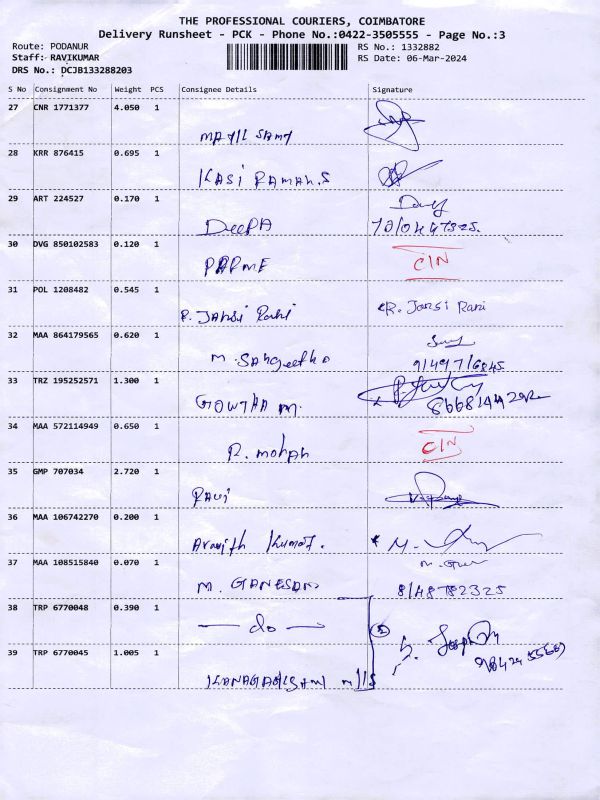 THE PROFESSIONAL COURIERS, COIMBATORE
Delivery Runsheet - PCK - Phone No.:0422-3505555 - Page No.:3
Route: PODANUR RS No.: 1332882
Staff: RAVIKUMAR RS Date: 06-Mar-2024
DRS No.: DCJB133288203
S No Consignment No Weight PCS Consignee Details Signature
27 CNR 1771377 4.050 1
MAYIL SAMY
28 KRR 876415 0.695 1
KASI RAMAN.S
29 ART 224527 0.170 1
DEEPA
30 DVG 850102583 0.120 1
CIN
31 POL 1208482 0.545 1
R. JANSI RANI R. Jansi Rani
32 MAA 864179565 0.620 1
M. SANGEETHA
33 TRZ 195252571 1.300 1
GOWTHAM.
34 MAA 572114949 0.650 1
R. MOHAN CIN
35 GMP 707034 2.720 1
RAVI
36 MAA 106742270 0.200 1
Aravith Kumar.
37 MAA 108515840 0.070 1
M. GANESAN 8148782325
38 TRP 6770048 0.390 1
— do —
39 TRP 6770045 1.005 1
MILLS